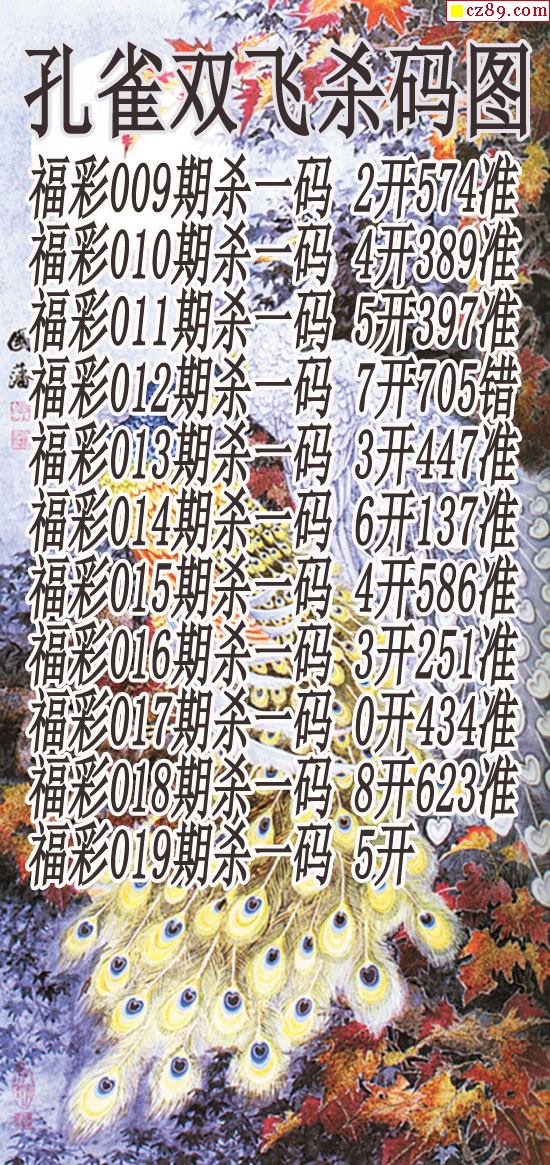 cz89.com
孔雀双飞杀码图
福彩009期杀一码 2开574准
福彩010期杀一码 4开389准
福彩011期杀一码 5开397准
福彩012期杀一码 7开705错
福彩013期杀一码 3开447准
福彩014期杀一码 6开137准
福彩015期杀一码 4开586准
福彩016期杀一码 3开251准
福彩017期杀一码 0开434准
福彩018期杀一码 8开623准
福彩019期杀一码 5开